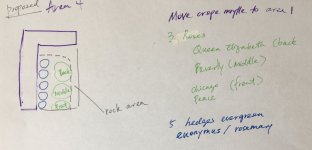 proposed Area 4
Move crape myrtle to area 1
3 Roses
Queen Elizabeth (back
Beverly (middle)
chicago (front)
Peace
Back
middle
front
rock area
5 hedges evergreen
euonymus / rosemary